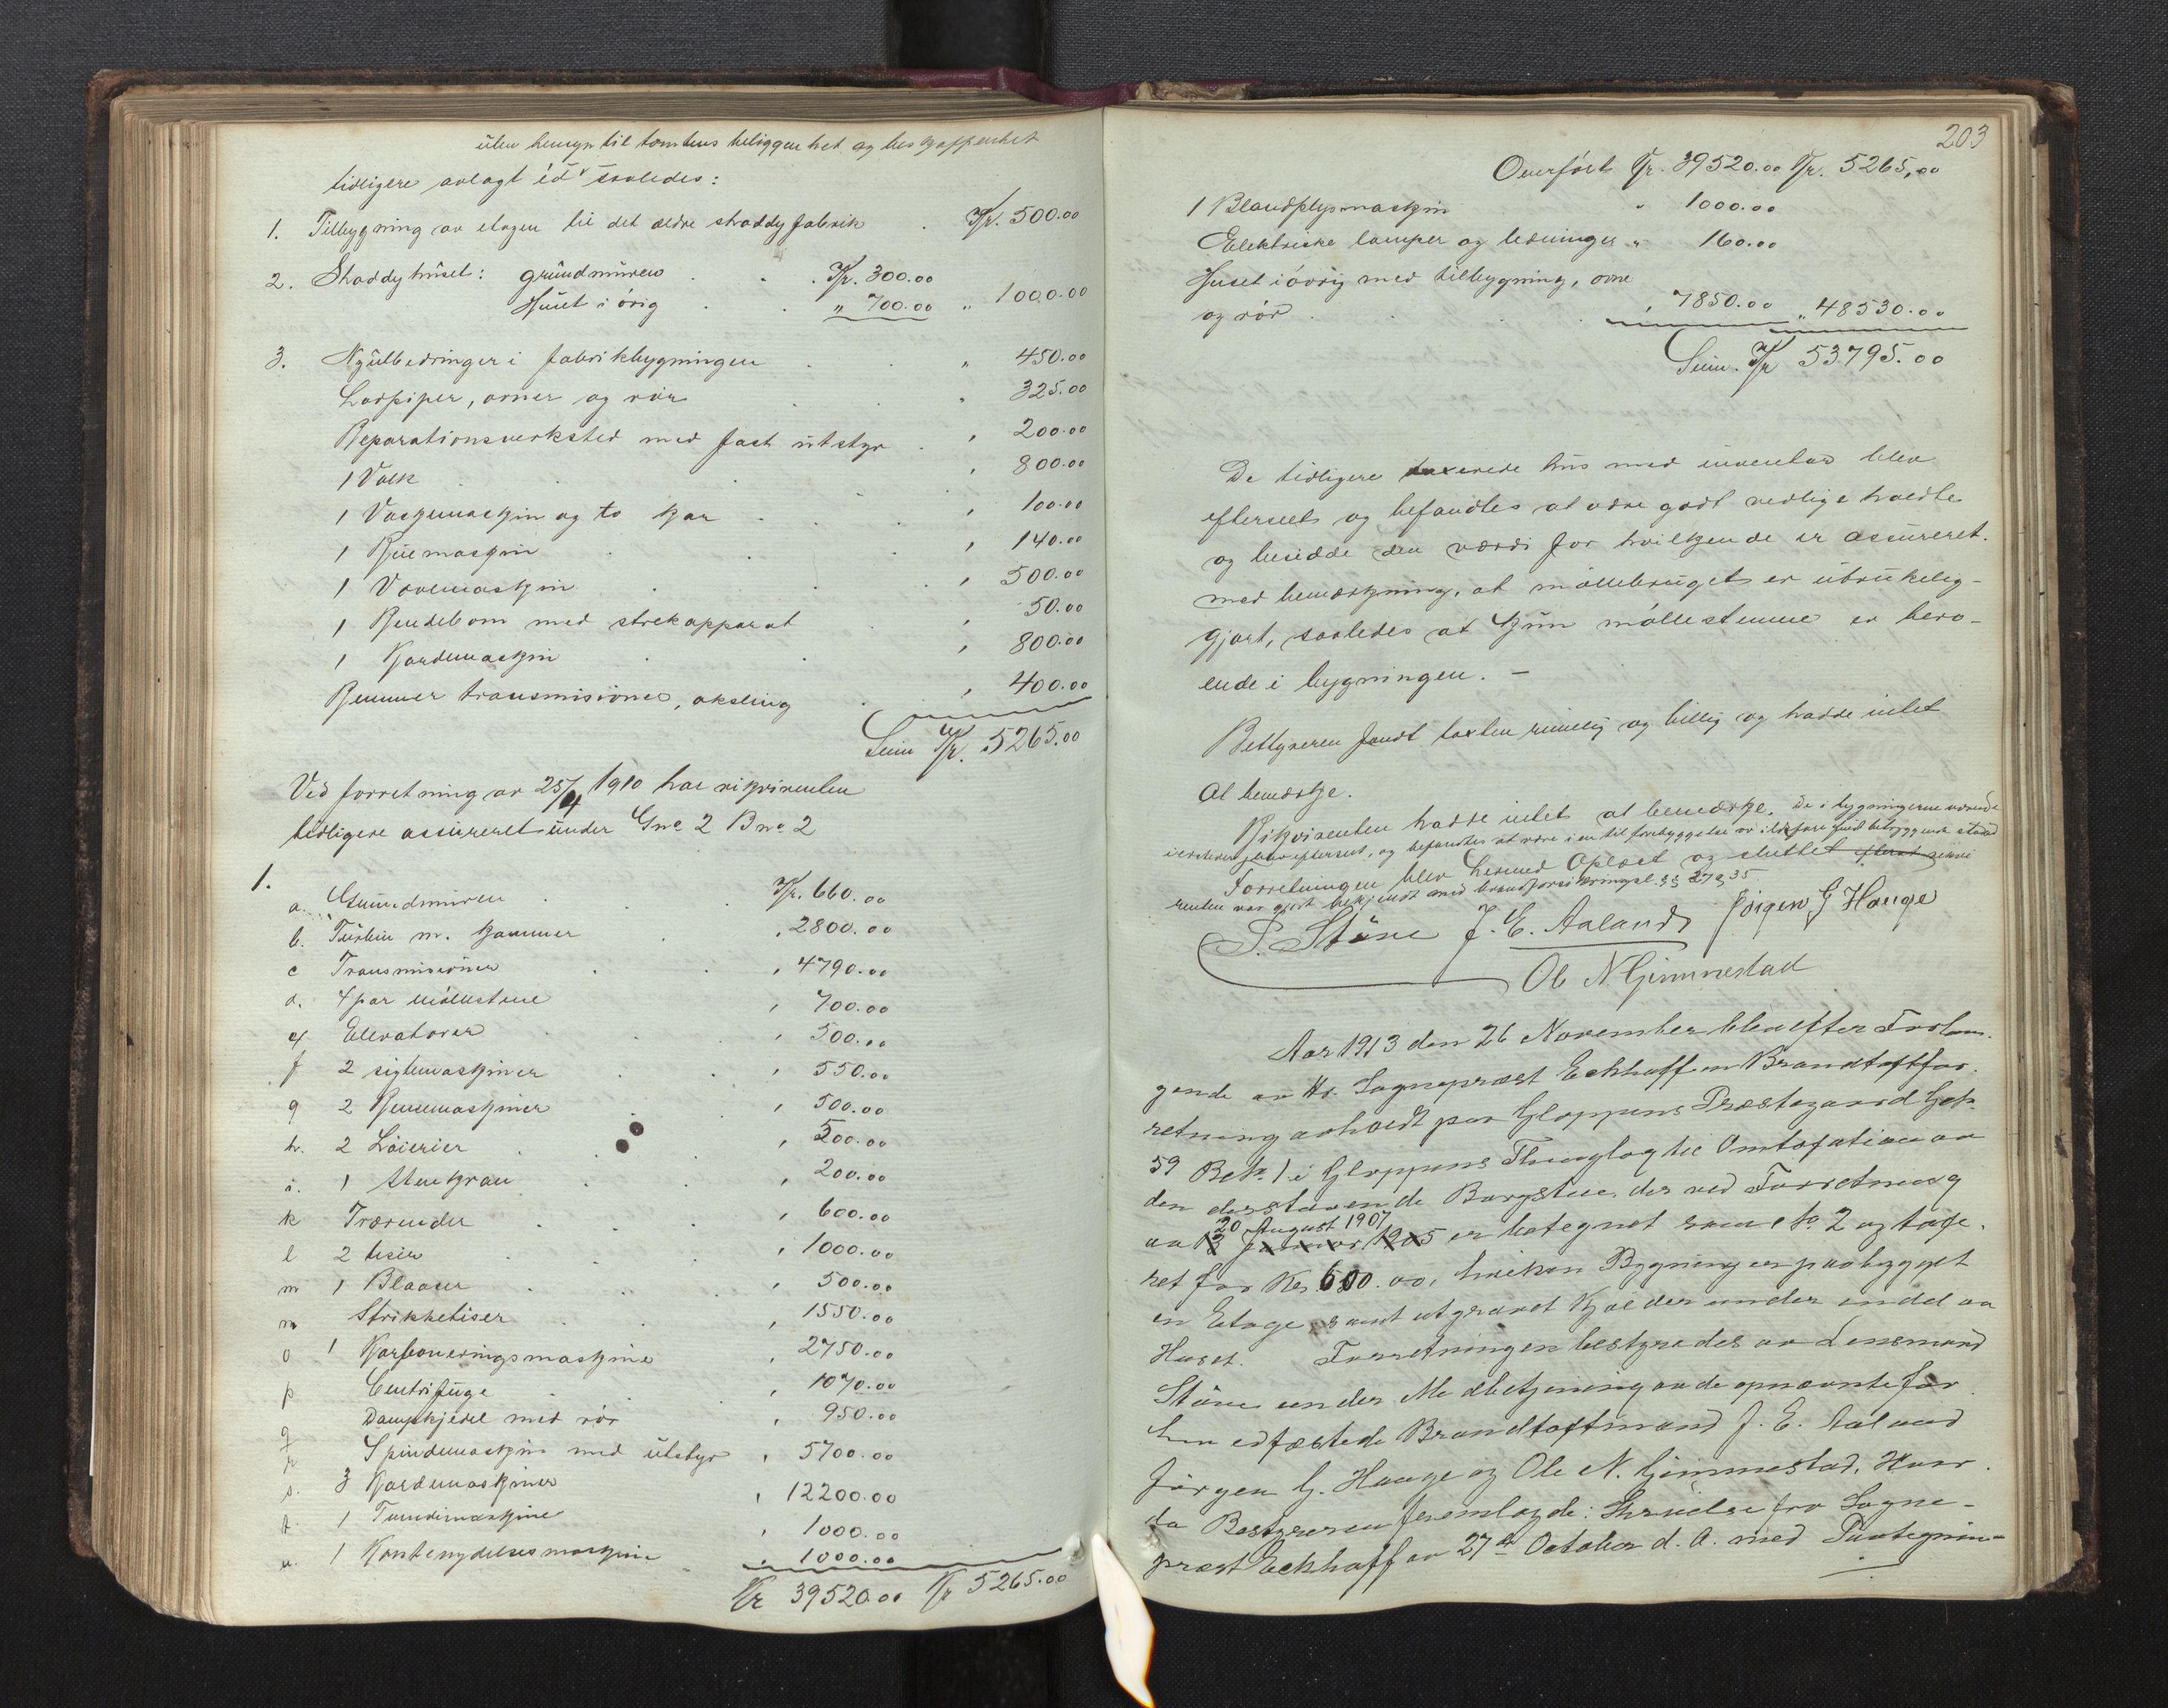 uten hensyn til tomtens beliggenhet og beskaffenhet
tidligere avlagt ed saaledes:
1. Tilbygning av etagen til det ældre shoddyfabrik . Kr. 500.00
2. Shoddyhuset: grundmuren . . . Kr. 300.00
Huset i övrig . . „ 700.00 „ 1000.00
3. Nyutbedringer i fabrikbygningen . „ 450.00
Lodpiper, ovner og rör . . „ 325.00
Reparationsverksted med fast utstyr . „ 200.00
1 Valk . . . „ 800.00
1 Vaskemaskin og to kar . . „ 100.00
1 Ruemaskin . . . „ 140.00
1 Vævemaskin . . . „ 500.00
1 Rendebom med strekapparat . „ 50.00
1 Kardemaskin . . „ 800.00
Remmer transmisioner, aksling . „ 400.00
Sum Kr. 5265.00
Ved forretning av 25/4 1910 har rikvirenten
tidligere assureret under Gno 2 Bno 2
1.
a. Grundmuren . . Kr. 660.00
b. Turbin m. kammer . „ 2800.00
c Transmisioner . . „ 4790.00
d. 4 par möllestene „ 700.00
e Elevatorer . . „ 500.00
f 2 sigtemaskiner . . „ 550.00
g 2 Rensemaskiner . „ 500.00
h. 2 Löierier . . „ 500.00
i. 1 Stenkran . . „ 200.00
k Trærender . . . „ 600.00
l 2 tiser . . . „ 1000.00
m 1 Blaaser . . . „ 500.00
n Strikketiser . . „ 1550.00
o 1 Karboneringsmaskine „ 2750.00
p Centrifuge . . „ 1070.00
q Dampkjedel med rör „ 950.00
r Spindemaskin med utstyr „ 5700.00
s. 3 Kardemaskiner „ 12200.00
t. 1 Tvindemaskine „ 1000.00
u. 1 maskine „ 1000.00
Kr 39520.00 Kr 5265.00
203
Overfört Kr. 39520.00 Kr. 5265,00
1 Blandplysmaskin „ 1000.00
Elektriske lamper og ledninger „ 160.00
Huset iövrig med tilbygning, ovne
og rör . . . „ 7850.00 „ 48530.00
Sum. Kr 53795.00
De tidligere taxerede hus med inventar blev
efterseet og befandtes at være godt vedlige holdte
og besidde den værdi for hvilken de er assureret.
med bemerkning, at möllebruget er ubrukelig-
gjort, saaledes at kun möllestenene er bero-
ende i bygningen. —
Bestyreren fandt taxten rimelig og billig og hadde intet
at bemerke.
Rikvirenten hadde intet at bemerke. De i bygningerne værende
ildsteder blev efterseet, og befandtes at være i en til forebyggelse av ildsfare fuldt betryggende stand
Forretningen blev hermed oplæst og sluttet efterat rikvi
renten var gjort bekjendt med brandforsikringsl. §§ 27 og 35
S. Støve J. E. Aaland Jörgen G Hauge
Ole N. Gimmestad
Aar 1913 den 26 November blev efter Forlan-
gende av Hr. Sogneprest Eckhoff en Brandtaxtfor-
retning avholdt paa Gloppens Prestegaard Gno
59 Bno 1. i Gloppens Thinglag til Omtaxation av
den derstaaende Borgstue, der ved Forretning
20 August 1907
av 13 Januar 1905 er betegnet som No 2 og taxe-
ret for Kr. 600.00, hvilken Bygning er paabygget
en Etage, samt utgravet Kjælder under endel av
Huset. Forretningen bestyredes av Lensmand
Støve under Medbetjening av de opnævnte før
hen edfæstede Brandtaxtmænd J. E. Aaland
Jörgen G. Hauge og Ole N. Gimmestad. Hvor-
da Bestyreren fremlagde: Skrivelse fra Sogne-
prest Eckhoff av 27de October d. A. med Paategnin-